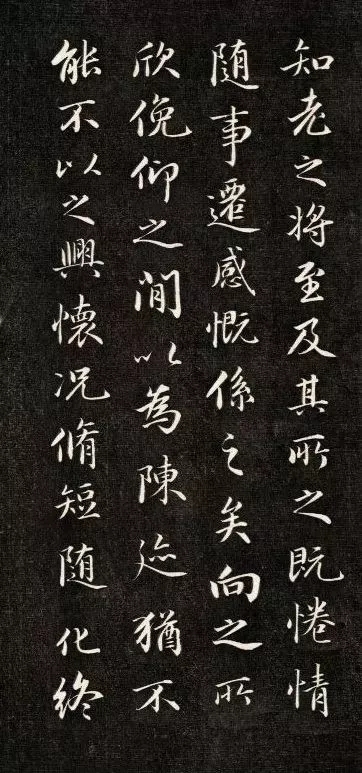 知老之将至及其所之既惓情
随事遷感慨係之矣向之所
欣俛仰之間以為陳迹猶不
能不以之興懷况脩短随化終